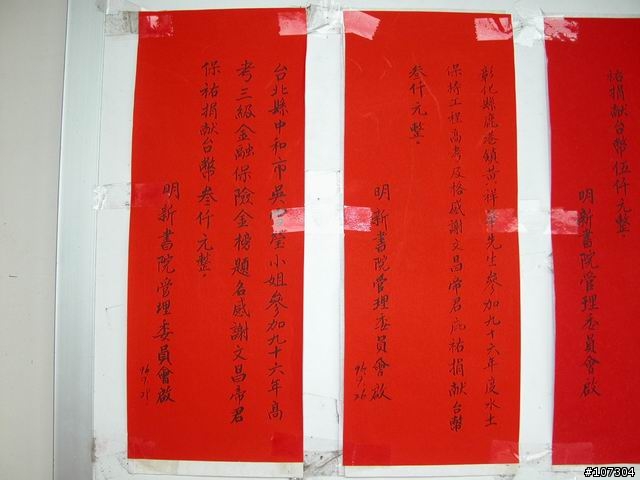 祐捐献台幣伍仟元整。
明新書院管理委員會啟
彰化縣鹿港鎮黃 祥 先生參加九十六年度水土
保持工程高考及格感謝文昌帝君庇祐捐献台幣
叁仟元整。
明新書院管理委員會啟
台北縣中和市吳 瑩小姐參加九十六年高
考三級金融保險金榜題名感謝文昌帝君
保祐捐献台幣叁仟元整。
明新書院管理委員會啟
#107304